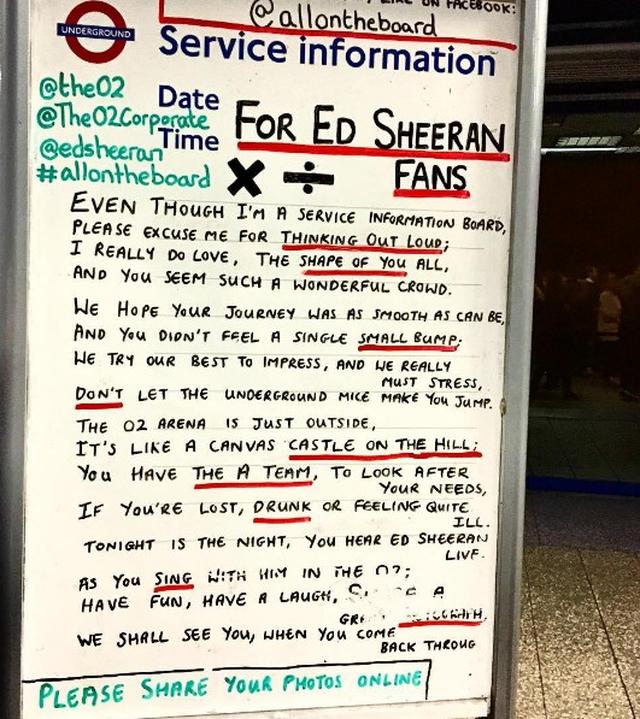 LIKE ON FACEBOOK:
@allontheboard
UNDERGROUND
Service information
@theO2
@TheO2Corporate
@edsheeran
#allontheboard
Date
Time
FOR ED SHEERAN
× ÷ FANS
EVEN THOUGH I'M A SERVICE INFORMATION BOARD,
PLEASE EXCUSE ME FOR THINKING OUT LOUD;
I REALLY DO LOVE, THE SHAPE OF YOU ALL,
AND YOU SEEM SUCH A WONDERFUL CROWD.
WE HOPE YOUR JOURNEY WAS AS SMOOTH AS CAN BE,
AND YOU DIDN'T FEEL A SINGLE SMALL BUMP;
WE TRY OUR BEST TO IMPRESS, AND WE REALLY
MUST STRESS,
DON'T LET THE UNDERGROUND MICE MAKE YOU JUMP.
THE O2 ARENA IS JUST OUTSIDE,
IT'S LIKE A CANVAS CASTLE ON THE HILL;
YOU HAVE THE A TEAM, TO LOOK AFTER
YOUR NEEDS,
IF YOU'RE LOST, DRUNK OR FEELING QUITE
ILL.
TONIGHT IS THE NIGHT, YOU HEAR ED SHEERAN
LIVE.
AS YOU SING WITH HIM IN THE O2;
HAVE FUN, HAVE A LAUGH, A
WE SHALL SEE YOU, WHEN YOU COME
BACK THROUG
PLEASE SHARE YOUR PHOTOS ONLINE